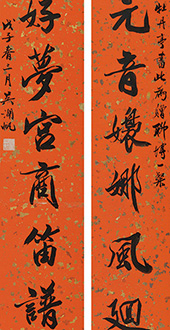 牡丹亭書此為贈聊博一粲
元音嬝娜風迴
好夢宮商笛譜
戊子春三月吳湖帆